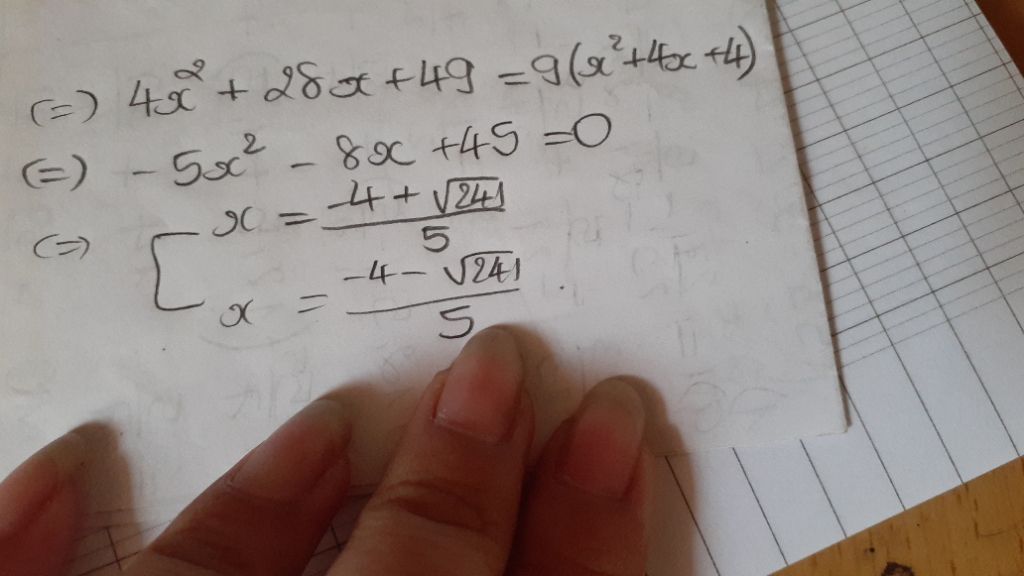 (=) 4x² + 28x + 49 = 9(x² + 4x + 4)
(=) - 5x² - 8x + 45 = 0
(=) [ x = (-4 + √241)/5
x = (-4 - √241)/5